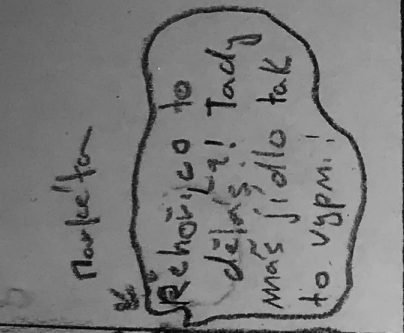 Markéta
Řehoři, co to
děláš! Tady
máš jídlo tak
to vypni!